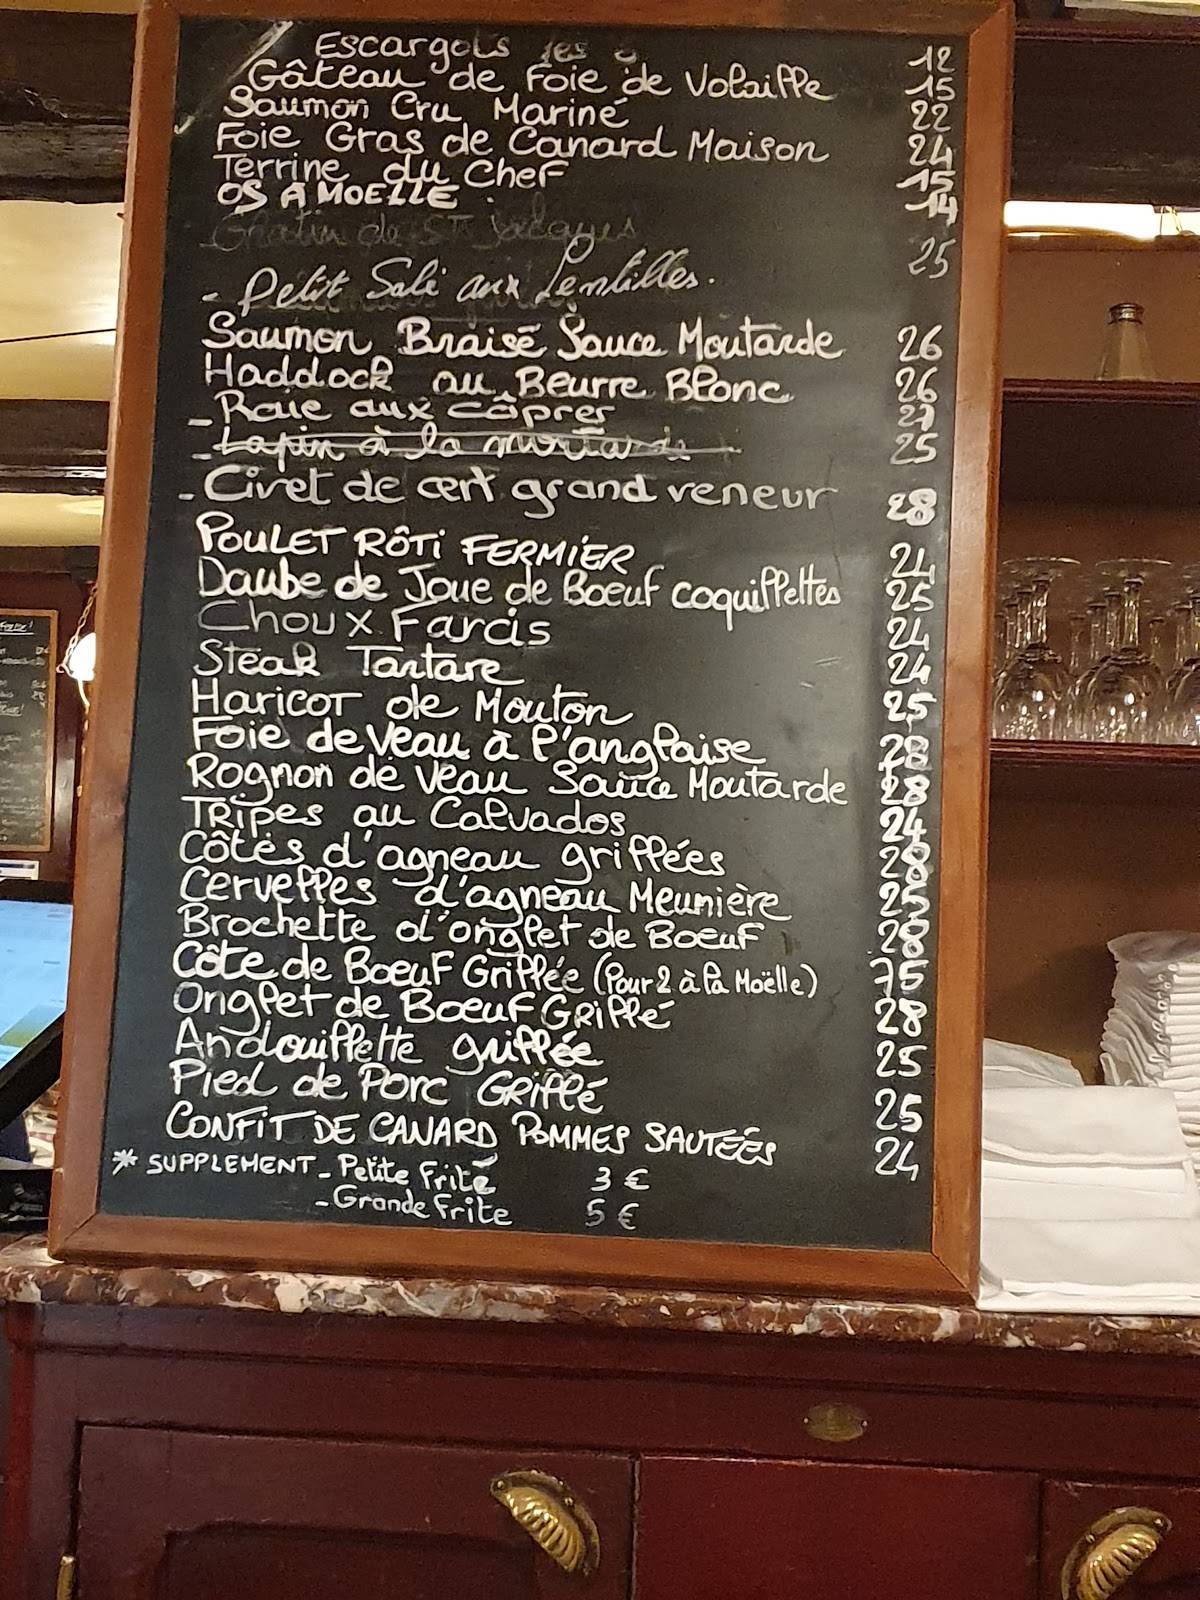 Escargots les 6 12
Gâteau de Foie de Volaille 15
Saumon Cru Mariné 22
Foie Gras de Canard Maison 24
Terrine du Chef 15
OS A MOELLE 14
Gratin de St Jacques
- Petit Salé aux Lentilles. 25
Saumon Braisé Sauce Moutarde 26
Haddock au Beurre Blanc 26
- Raie aux câpres 27
- Lapin à la moutarde 25
- Civet de cerf grand veneur 28
POULET RÔTi FERMiER 24
Daube de Joue de Boeuf coquillettes 25
Choux Farcis 24
Steak Tartare 24
Haricot de Mouton 25
Foie de Veau à l'anglaise 28
Rognon de Veau Sauce Moutarde 28
Tripes au Calvados 24
Côtes d'agneau grillées 28
Cervelles d'agneau Meunière 25
Brochette d'onglet de Boeuf 28
Côte de Boeuf Grillée (Pour 2 à la Moëlle) 75
Onglet de Boeuf Grillé 28
Andouillette grillée 25
Pied de Porc Grillé 25
CONFiT DE CANARD POMMES SAUTÉES 24
* SUPPLEMENT - Petite Frite 3 €
- Grande Frite 5 €